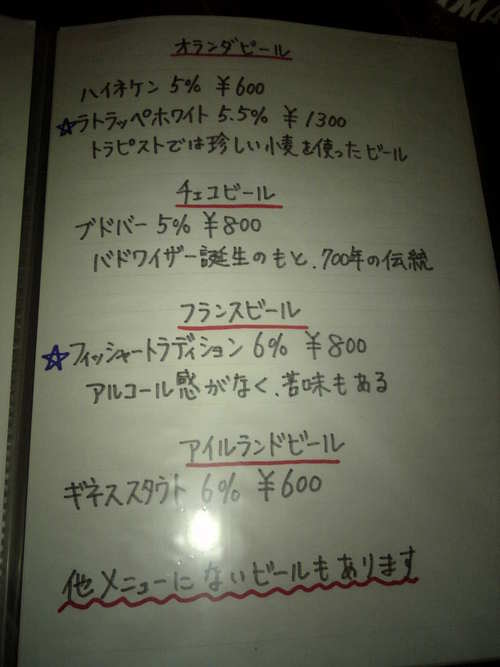 オランダビール
ハイネケン 5% ¥600
☆ラトラッペホワイト 5.5% ¥1300
トラピストでは珍しい小麦を使ったビール
チェコビール
ブドバー 5% ¥800
バドワイザー誕生のもと、700年の伝統
フランスビール
☆フィッシャートラディション 6% ¥800
アルコール感がなく、苦味もある
アイルランドビール
ギネススタウト 6% ¥600
他メニューにないビールもあります